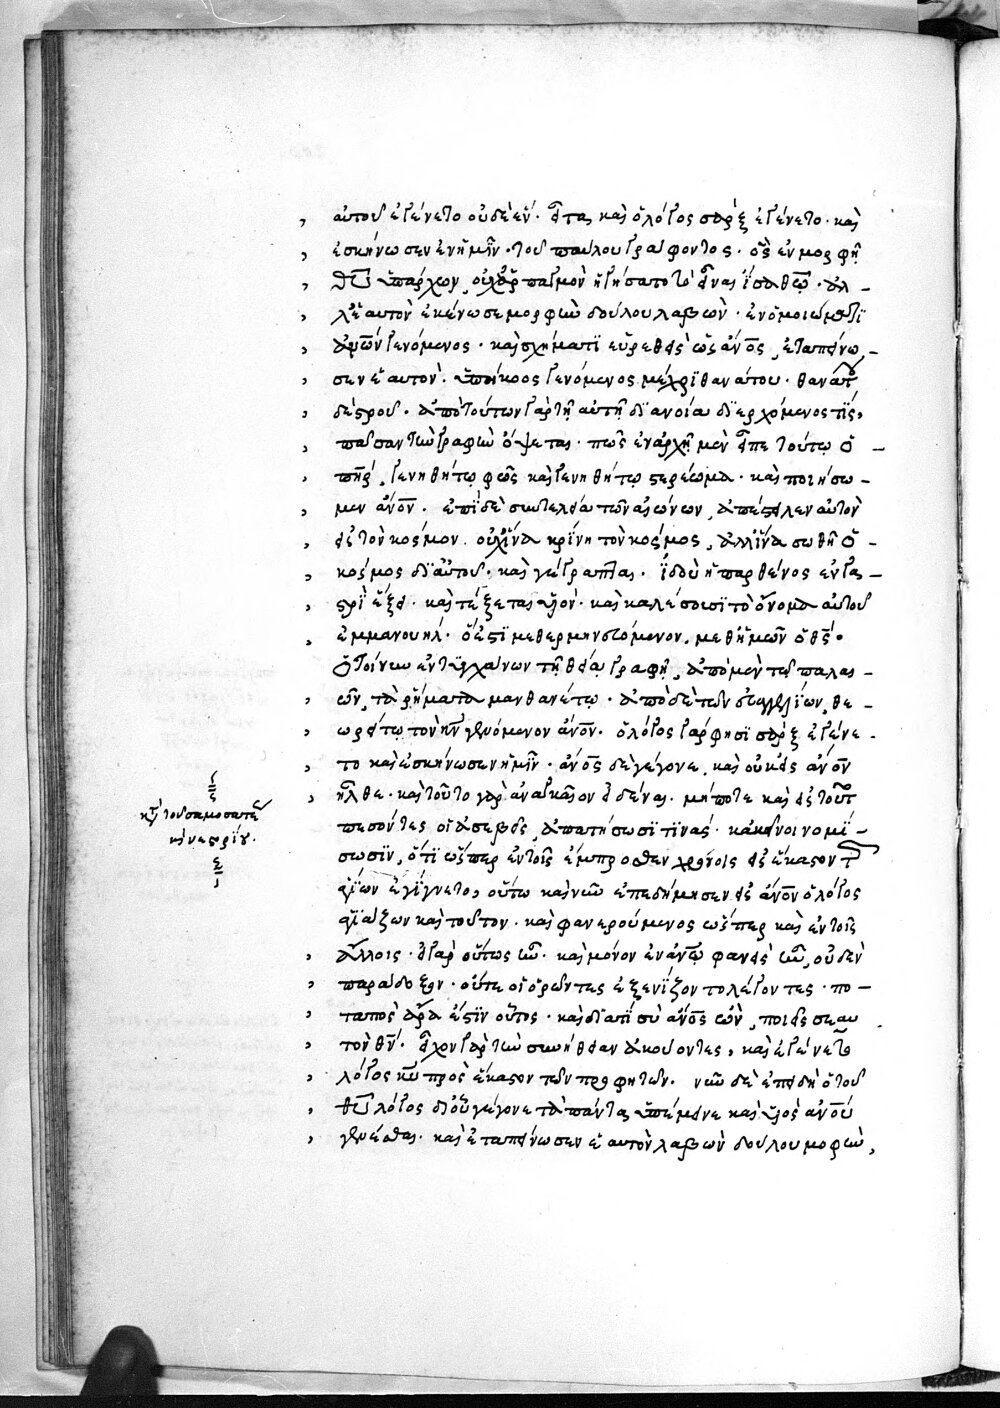 αὐτοῦ ἐγένετο οὐδὲ ἕν· εἶτα, καὶ ὁ λόγος σὰρξ ἐγένετο· καὶ
ἐσκήνωσεν ἐν ἡμῖν· τοῦ παύλου γράφοντος· ὃς ἐν μορφῇ
θῦ ὑπάρχων, οὐχ ἁρπαγμὸν ἡγήσατο τὸ εἶναι ἴσα θῶ· ἀλ-
λ' ἑαυτὸν ἐκένωσε μορφὴν δούλου λαβών· ἐν ὁμοιώματι
ἀνῶν γενόμενος· καὶ σχήματι εὑρεθεὶς ὡς ἄνος, ἐταπείνω-
σεν ἑαυτὸν· ὑπήκοος γενόμενος μέχρι θανάτου· θανάτου
δὲ σταυροῦ· ἀπὸ τούτων γὰρ τῇ αὐτῇ διανοία διερχόμενός τις,
πᾶσαν τὴν γραφὴν ὄψεται· πῶς ἐν ἀρχῇ μὲν εἶπε τούτω ὁ
πηρ, γενηθήτω φῶς καὶ γενηθήτω στερέωμα· καὶ ποιήσω-
μεν ἄνον· ἐπὶ δὲ συντελεία τῶν αἰώνων, ἀπέστειλεν αὐτὸν
εἰς τὸν κόσμον. οὐχ ἵνα κρίνη τὸν κόσμος, ἀλλ' ἵνα σωθῇ ὁ
κόσμος δι' αὐτοῦ· καὶ γέγραπται· ἰδοὺ ἡ παρθένος ἐν γα-
στρὶ ἕξει· καὶ τέξεται υἱόν· καὶ καλέσουσι τὸ ὄνομα αὐτοῦ
ἐμμανουήλ· ὅ ἐστι μεθερμηνευόμενον, μεθ' ἡμῶν ὁ θς·
ὁ τοίνυν ἐντυγχάνων τῇ θεία γραφῇ, ἀπὸ μὲν τῶν παλαι-
ῶν, τὰ ῥήματα μανθανέτω· ἀπὸ δὲ τῶν εὐαγγελίων, θε-
ωρείτω τὸν κν γενόμενον ἄνον· ὁ λόγος γάρ φησι σὰρξ ἐγένε-
το καὶ ἐσκήνωσεν ἡμῖν· ἄνος δὲ γέγονε, καὶ οὐκ εἰς ἄνον
ἦλθε· καὶ τοῦτο γὰρ ἀναγκαῖον εἰδέναι· μήποτε καὶ εἰς τοῦτο
πεσόντες οἱ ἀσεβεῖς, ἀπατήσωσί τινάς· κἀκεῖνοι νομί-
σωσιν, ὅτι ὥσπερ ἐν τοῖς ἔμπροσθεν χρόνοις εἰς ἕκαστον τῶν
ἁγίων ἐγίγνετο, οὕτω καὶ νῦν ἐπεδήμησεν εἰς ἄνον ὁ λόγος
ἁγιάζων καὶ τοῦτον· καὶ φανερούμενος ὥσπερ καὶ ἐν τοῖς
ἄλλοις· εἰ γὰρ οὕτως ἦν· καὶ μόνον ἐν ἀνω φανεὶς ἦν, οὐδὲν
παράδοξον· οὔτε οἱ ὁρῶντες ἐξενίζοντο λέγοντες· πο-
ταπὸς ἄρα ἐστὶν οὗτος· καὶ διατί σὺ ἄνος ὢν, ποιεῖς σεαυ
τὸν θν· εἶχον γὰρ τὴν συνήθειαν ἀκούοντες, καὶ ἐγένετο
λόγος κυ πρὸς ἕκαστον τῶν προφητῶν· νῦν δὲ ἐπειδὴ ὁ τοῦ
θῦ λόγος δι' οὗ γέγονε τὰ πάντα, ὑπέμεινε καὶ υἱὸς ἀνου
γενέσθαι· καὶ ἐταπείνωσεν ἑαυτὸν λαβὼν δούλου μορφὴν,
κατὰ τοῦ σαμοσατέως
καὶ νεστορίου·